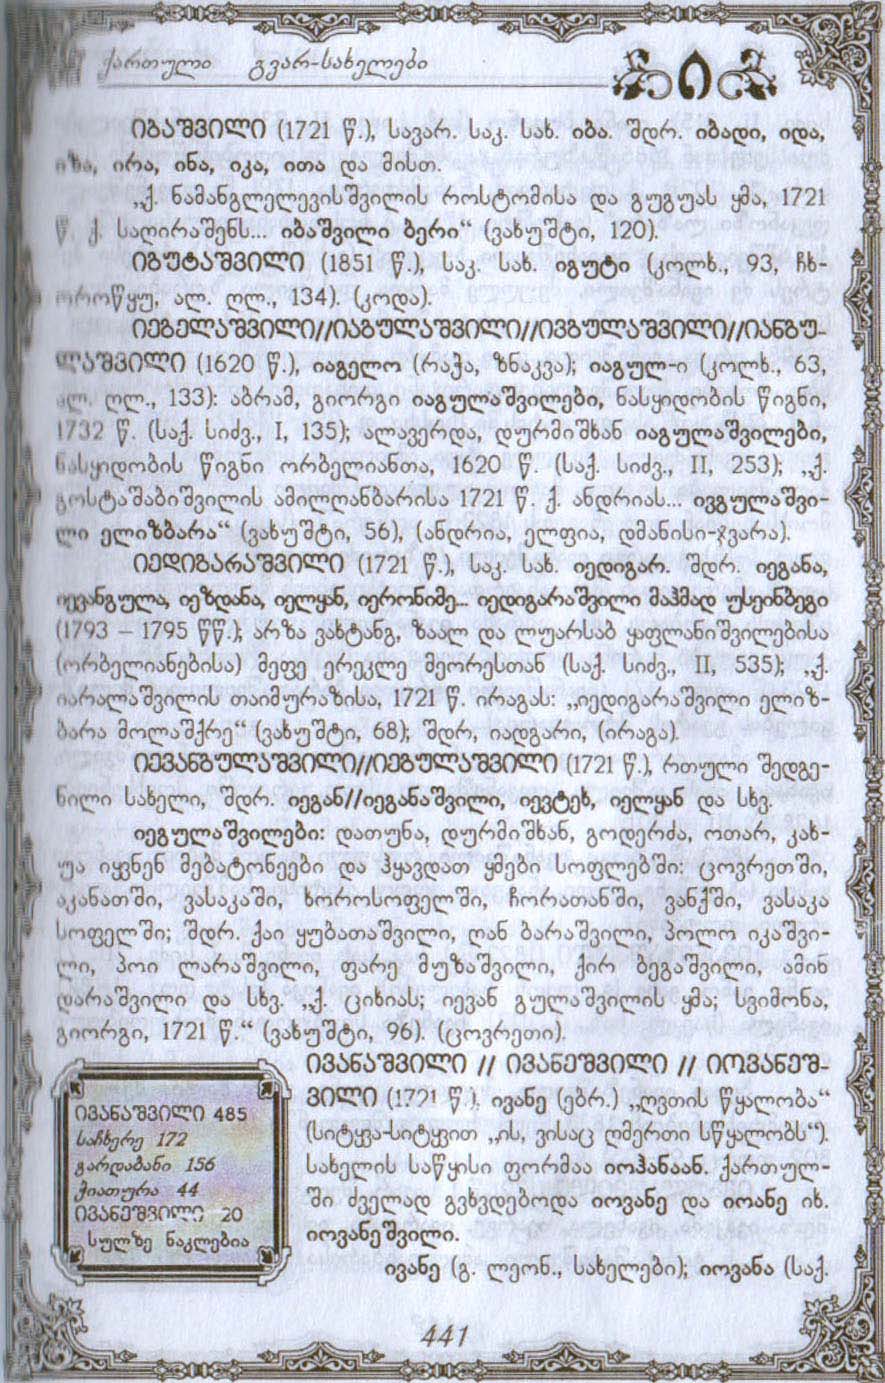 ქართული გვარ-სახელები
ი
იბაშვილი (1721 წ.), სავარ. საკ. სახ. იბა. შდრ. იბადი, იდა,
იზა, ირა, ინა, იკა, ითა და მისთ.
„ქ. ნამანგლელევისშვილის როსტომისა და გუგუას ყმა, 1721
წ. ქ. საღირაშენს... იბაშვილი ბერი“ (ვახუშტი, 120).
იგუტაშვილი (1851 წ.), საკ. სახ. იგუტი (კოლხ., 93, ჩხ-
ოროწყუ, ალ. ღლ., 134). (კოდა).
იეგელაშვილი//იაგულაშვილი//ივგულაშვილი//იანგუ-
ლაშვილი (1620 წ.), იაგელო (რაჭა, ზნაკვა); იაგულ-ი (კოლხ., 63,
ალ. ღლ., 133): აბრამ, გიორგი იაგულაშვილები, ნასყიდობის წიგნი,
1732 წ. (საქ. სიძვ., I, 135); ალავერდა, დურმიშხან იაგულაშვილები,
ნასყიდობის წიგნი ორბელიანთა, 1620 წ. (საქ. სიძვ., II, 253); „ქ.
გოსტაშაბიშვილის ამილღანბარისა 1721 წ. ქ. ანდრიას... ივგულაშვი-
ლი ელიზბარა“ (ვახუშტი, 56), (ანდრია, ელფია, დმანისი-ჯვარა).
იედიგარაშვილი (1721 წ.), საკ. სახ. იედიგარ. შდრ. იეგანა,
იევანგულა, იეზდანა, იელყან, იერონიმე... იედიგარაშვილი მაჰმად უსეინბეგი
(1793 – 1795 წწ.); არზა ვახტანგ, ზაალ და ლუარსაბ ყაფლანიშვილებისა
(ორბელიანებისა) მეფე ერეკლე მეორესთან (საქ. სიძვ., II, 535); „ქ.
იარალაშვილის თაიმურაზისა, 1721 წ. ირაგას: „იედიგარაშვილი ელიზ-
ბარა მოლაშქრე“ (ვახუშტი, 68); შდრ, იადგარი, (ირაგა).
იევანგულაშვილი//იეგულაშვილი (1721 წ.), რთული შედგე-
ნილი სახელი, შდრ. იეგან//იეგანაშვილი, იევტეხ, იელყან და სხვ.
იეგულაშვილები: დათუნა, დურმიშხან, გოდერძა, ოთარ, კახ-
უა იყვნენ მებატონეები და ჰყავდათ ყმები სოფლებში: ცოვრეთში,
აკანათში, ვასაკაში, ხოროსოფელში, ჩორათანში, ვანქში, ვასაკა
სოფელში; შდრ. ქაი ყუბათაშვილი, ღან ბარაშვილი, პოლო იკაშვი-
ლი, პოი ლარაშვილი, ფარე მუზაშვილი, ქირ ბეგაშვილი, ამინ
დარაშვილი და სხვ. „ქ. ციხიას; იევან გულაშვილის ყმა; სვიმონა,
გიორგი, 1721 წ.“ (ვახუშტი, 96). (ცოვრეთი).
ივანაშვილი // ივანეშვილი // იოვანეშ-
ვილი (1721 წ.), ივანე (ებრ.) „ღვთის წყალობა“
(სიტყვა-სიტყვით „ის, ვისაც ღმერთი სწყალობს“).
სახელის საწყისი ფორმაა იოჰანაან. ქართულ-
ში ძველად გვხვდებოდა იოვანე და იოანე იხ.
იოვანეშვილი.
ივანე (გ. ლეონ., სახელები); იოვანა (საქ.
ივანაშვილი 485
საჩხერე 172
გარდაბანი 156
ჭიათურა 44
ივანეშვილი 20
სულზე ნაკლებია
441